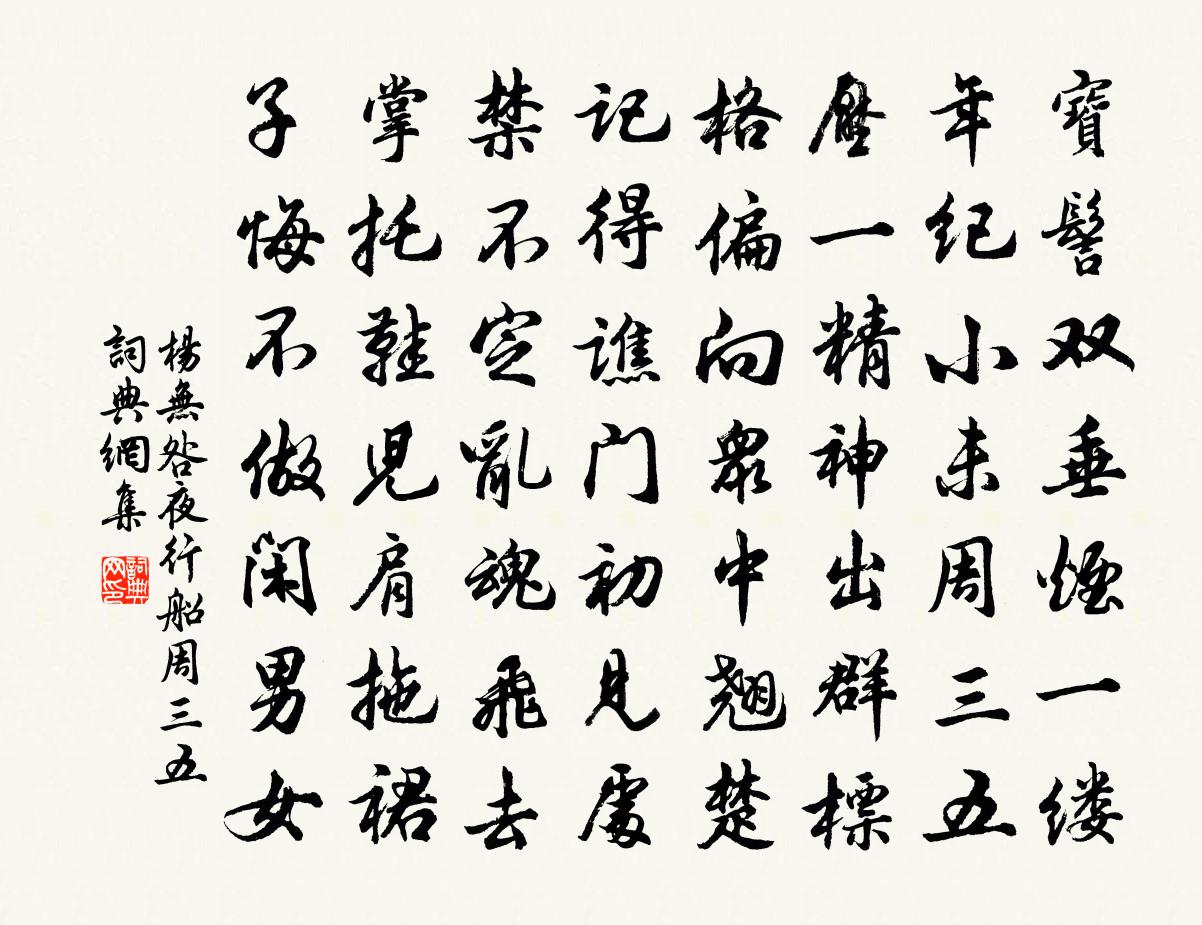 寶髻双垂煙一缕
年纪小未周三五
壓一精神出群標
格偏向衆中翘楚
记得譙门初見處
禁不定亂魂飛去
掌托鞋児肩拖裙
子悔不做闲男女
楊無咎夜行船周三五
詞典網集
詞典网印